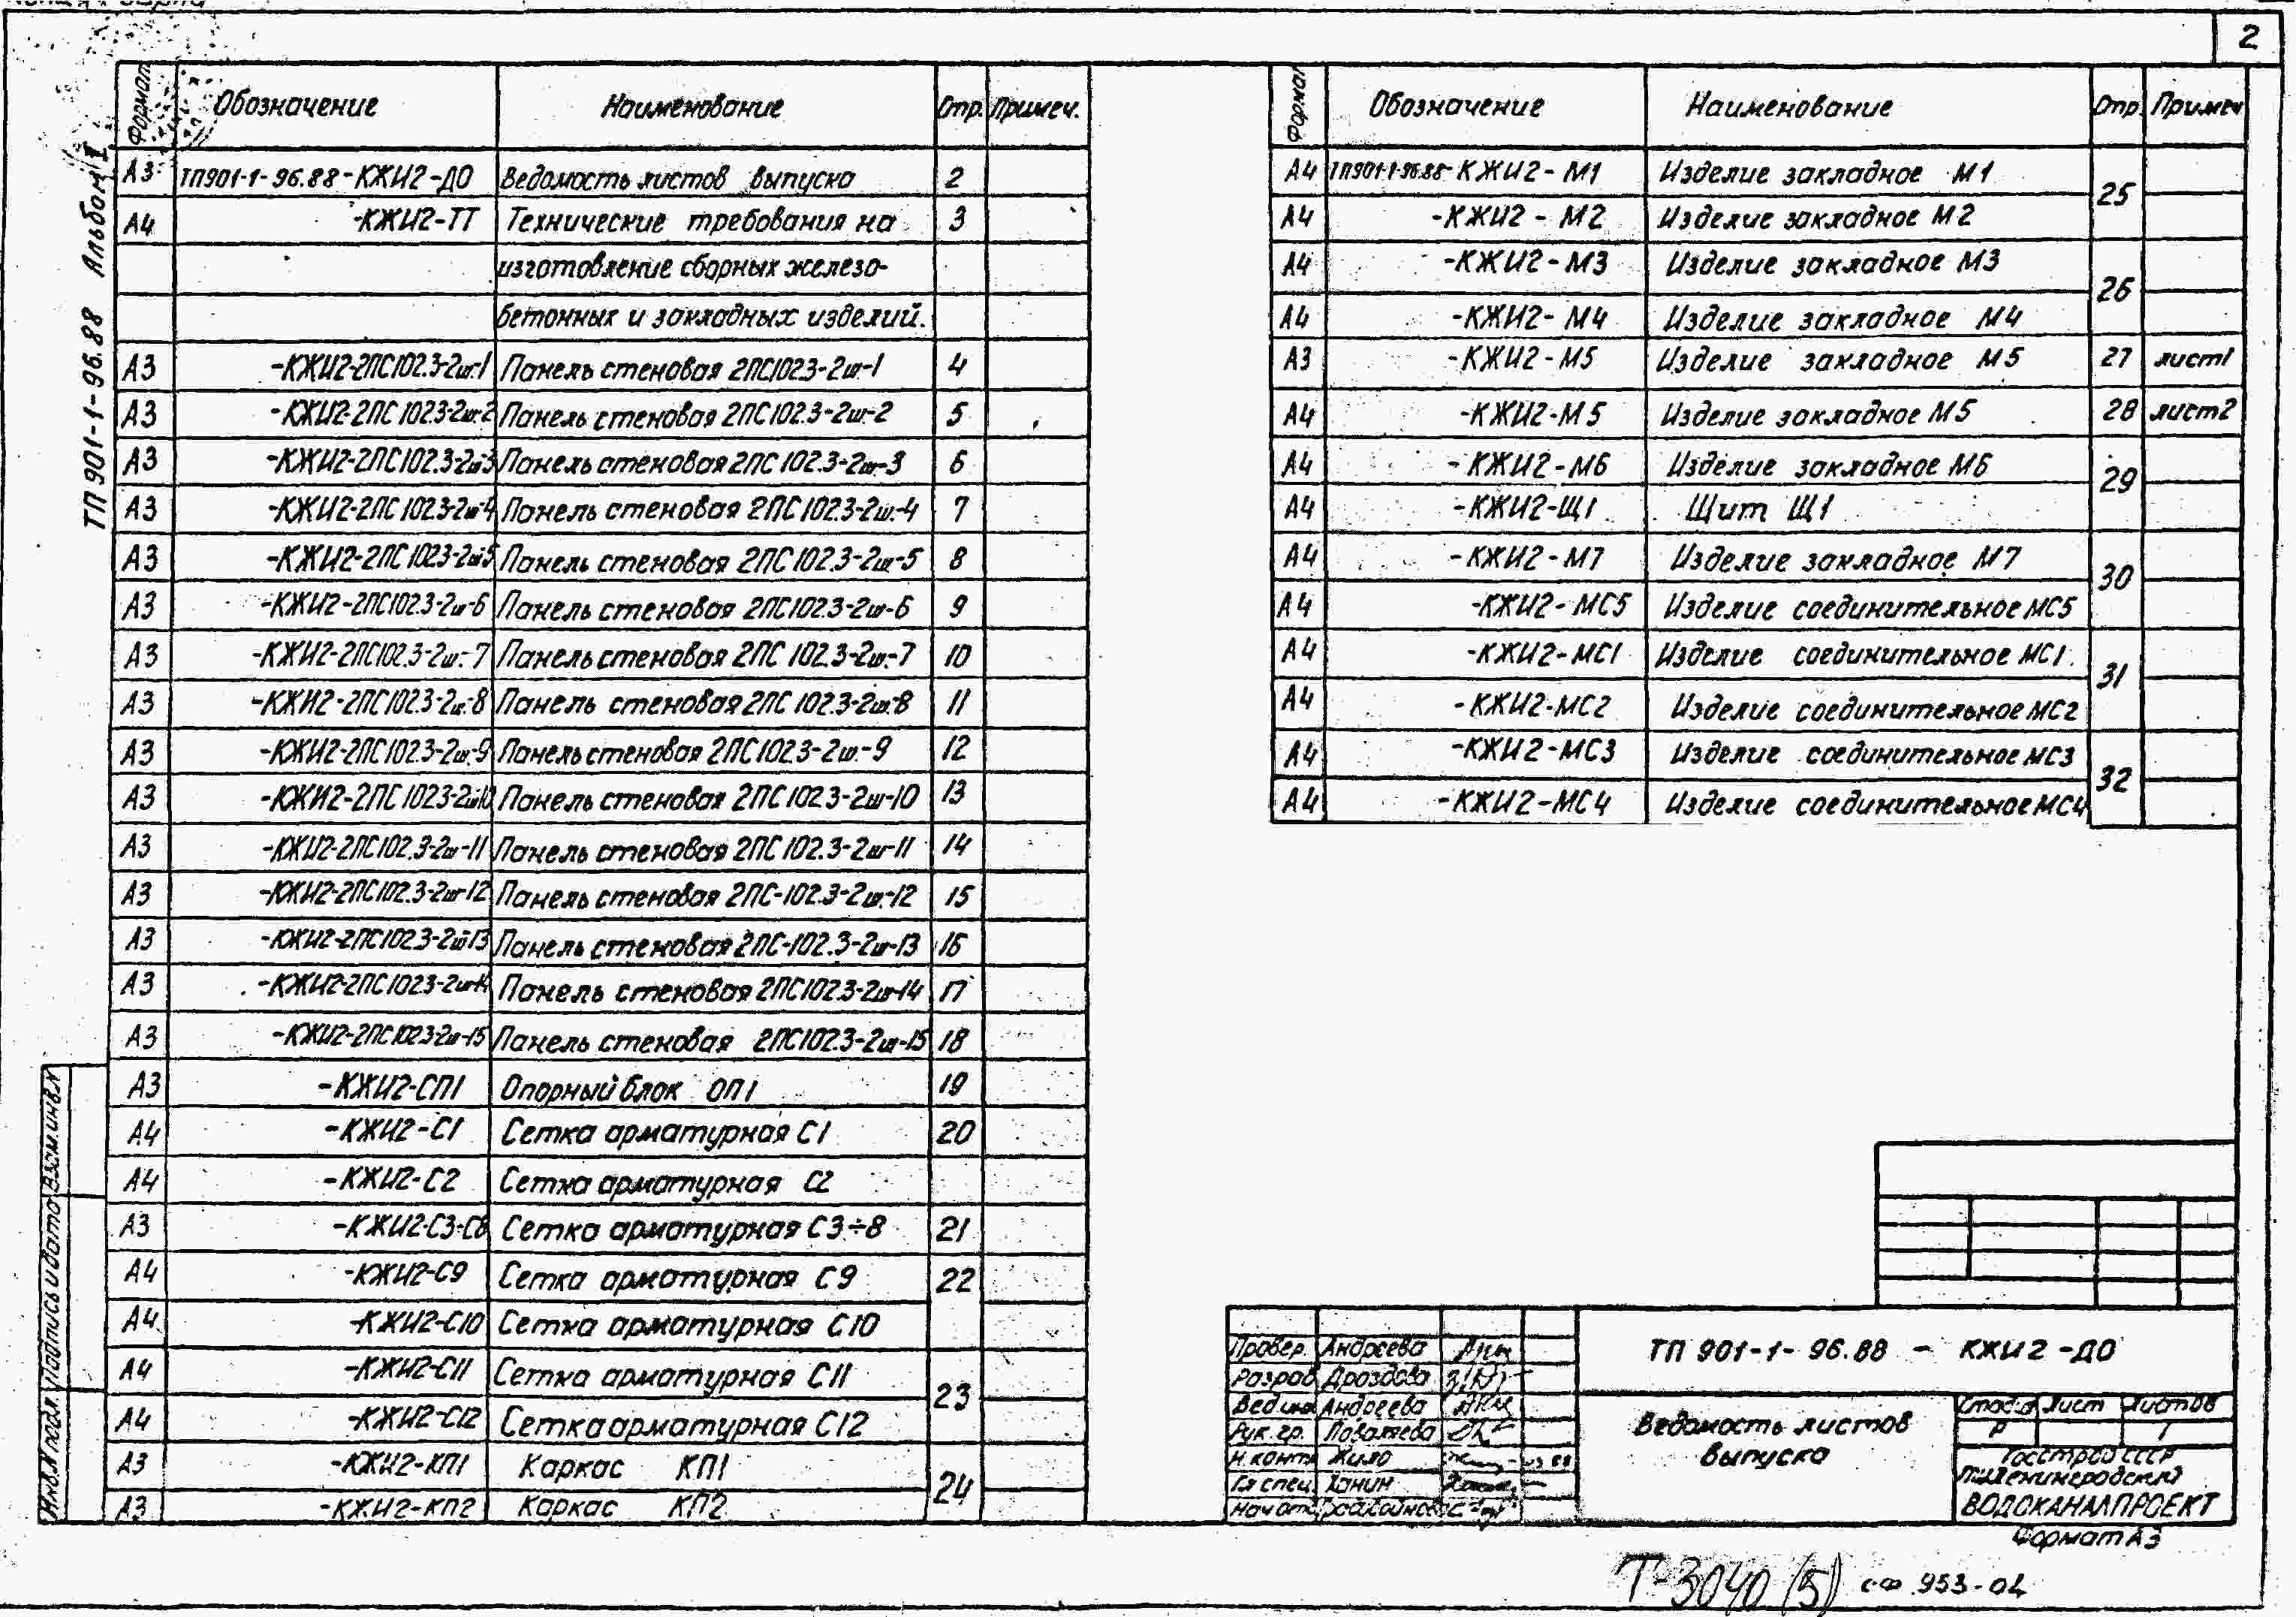 2
ТП 901-1-96.88 Альбом I
Формат Обозначение Наименование Стр. Примеч.
А3 ТП901-1-96.88-КЖИ2-ДО Ведомость листов выпуска 2
А4 -КЖИ2-ТТ Технические требования на 3
изготовление сборных железо-
бетонных и закладных изделий.
А3 -КЖИ2-2ПС102.3-2ш-1 Панель стеновая 2ПС102.3-2ш-1 4
А3 -КЖИ2-2ПС102.3-2ш-2 Панель стеновая 2ПС102.3-2ш-2 5
А3 -КЖИ2-2ПС102.3-2ш-3 Панель стеновая 2ПС102.3-2ш-3 6
А3 -КЖИ2-2ПС102.3-2ш-4 Панель стеновая 2ПС102.3-2ш-4 7
А3 -КЖИ2-2ПС102.3-2ш-5 Панель стеновая 2ПС102.3-2ш-5 8
А3 -КЖИ2-2ПС102.3-2ш-6 Панель стеновая 2ПС102.3-2ш-6 9
А3 -КЖИ2-2ПС102.3-2ш-7 Панель стеновая 2ПС102.3-2ш-7 10
А3 -КЖИ2-2ПС102.3-2ш-8 Панель стеновая 2ПС102.3-2ш-8 11
А3 -КЖИ2-2ПС102.3-2ш-9 Панель стеновая 2ПС102.3-2ш-9 12
А3 -КЖИ2-2ПС102.3-2ш-10 Панель стеновая 2ПС102.3-2ш-10 13
А3 -КЖИ2-2ПС102.3-2ш-11 Панель стеновая 2ПС102.3-2ш-11 14
А3 -КЖИ2-2ПС102.3-2ш-12 Панель стеновая 2ПС-102.3-2ш-12 15
А3 -КЖИ2-2ПС102.3-2ш-13 Панель стеновая 2ПС-102.3-2ш-13 16
А3 -КЖИ2-2ПС102.3-2ш-14 Панель стеновая 2ПС102.3-2ш-14 17
А3 -КЖИ2-2ПС102.3-2ш-15 Панель стеновая 2ПС102.3-2ш-15 18
А3 -КЖИ2-СП1 Опорный блок ОП1 19
А4 -КЖИ2-С1 Сетка арматурная С1 20
А4 -КЖИ2-С2 Сетка арматурная С2
А3 -КЖИ2-С3-С8 Сетка арматурная С3÷8 21
А4 -КЖИ2-С9 Сетка арматурная С9 22
А4 -КЖИ2-С10 Сетка арматурная С10
А4 -КЖИ2-С11 Сетка арматурная С11 23
А4 -КЖИ2-С12 Сетка арматурная С12
А3 -КЖИ2-КП1 Каркас КП1 24
А3 -КЖИ2-КП2 Каркас КП2
Формат Обозначение Наименование Стр. Примеч
А4 ТП901-1-96.88-КЖИ2-М1 Изделие закладное М1 25
А4 -КЖИ2-М2 Изделие закладное М2
А4 -КЖИ2-М3 Изделие закладное М3 26
А4 -КЖИ2-М4 Изделие закладное М4
А3 -КЖИ2-М5 Изделие закладное М5 27 лист1
А4 -КЖИ2-М5 Изделие закладное М5 28 лист2
А4 -КЖИ2-М6 Изделие закладное М6 29
А4 -КЖИ2-Щ1 Щит Щ1
А4 -КЖИ2-М7 Изделие закладное М7 30
А4 -КЖИ2-МС5 Изделие соединительное МС5
А4 -КЖИ2-МС1 Изделие соединительное МС1 31
А4 -КЖИ2-МС2 Изделие соединительное МС2
А4 -КЖИ2-МС3 Изделие соединительное МС3 32
А4 -КЖИ2-МС4 Изделие соединительное МС4
Инв.N подл. Подпись и дата Взам.инв.N
Провер. Андреева
Разраб Дроздова
Вед.инж Андреева
Рук.гр. Поваляева
Н.контр Жило
Гл спец. Ханин
Нач отд
ТП 901-1-96.88 - КЖИ2-ДО
Ведомость листов
выпуска
Стадия Лист Листов
Р 1
Госстрой СССР
Ленинградский
ВОДОКАНАЛПРОЕКТ
Формат А3
Т-3040 (5) сф 953-04